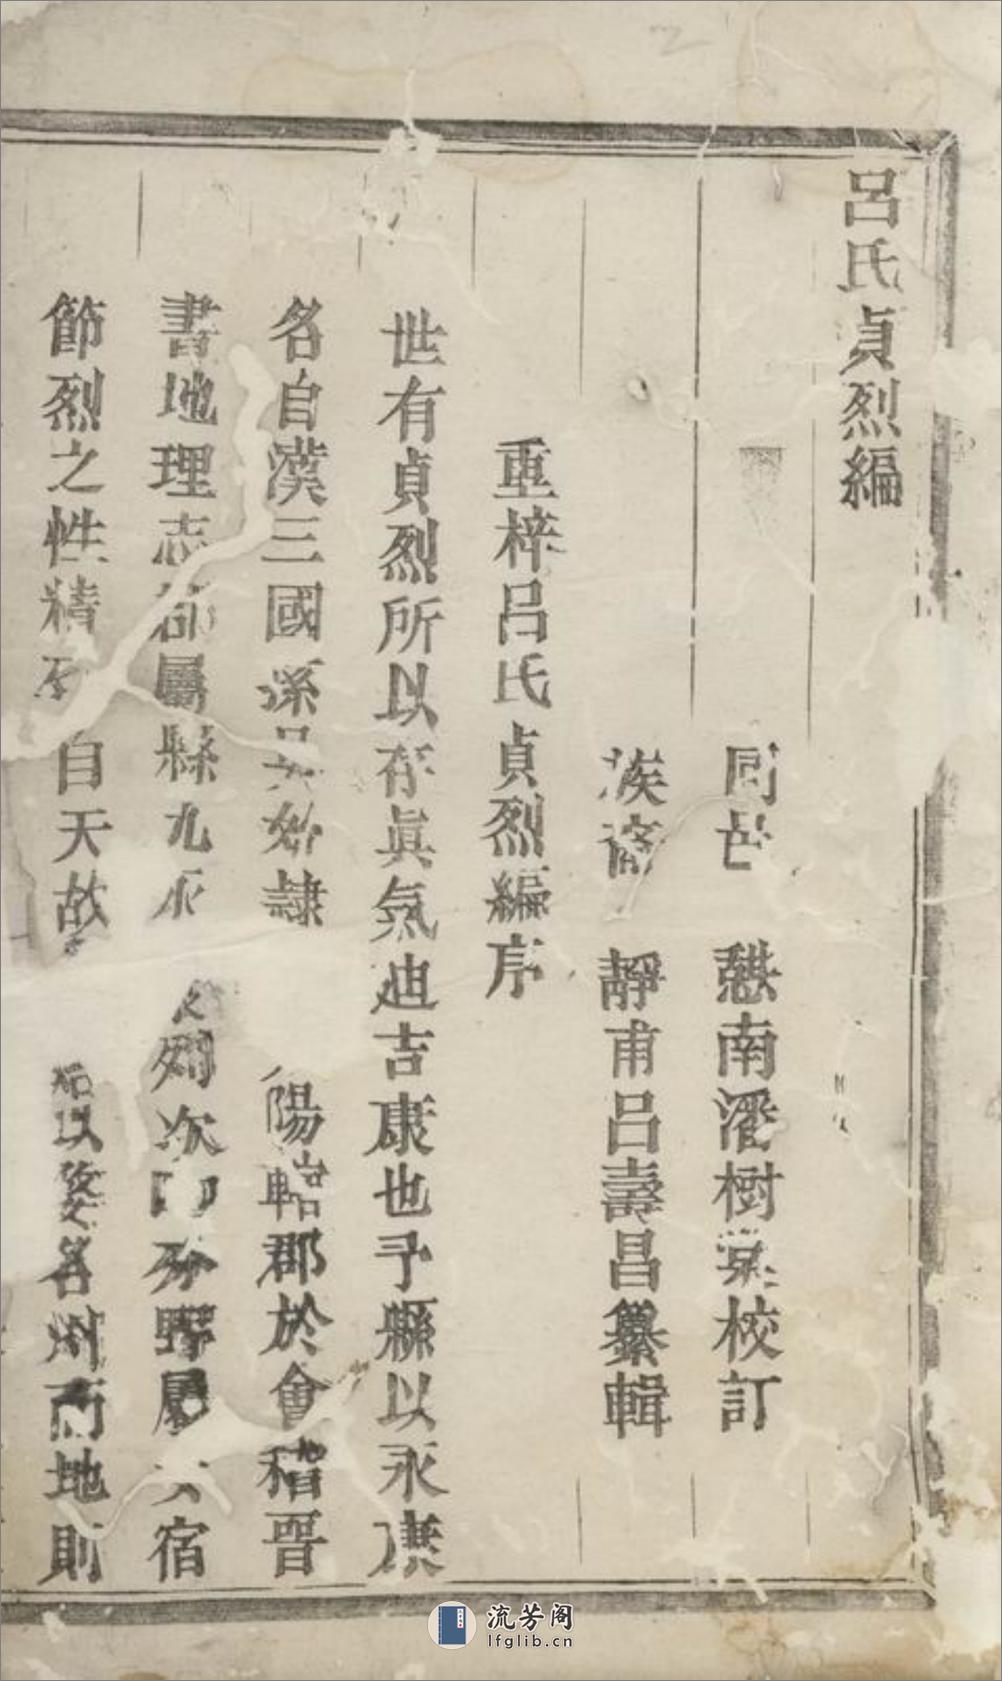 呂氏貞烈編
同邑 懋南濯樹棠校訂
族裔 靜甫呂壽昌纂輯
重梓呂氏貞烈編序
世有貞烈所以存眞氣迪吉康也予縣以永康
名自漢三國孫吳始隸 陽輼郡於會稽晉
書地理志郡屬縣九永 列次四分野屬女宿
節烈之性精 自天故 以婺名州而地則
流芳阁
lfglib.cn